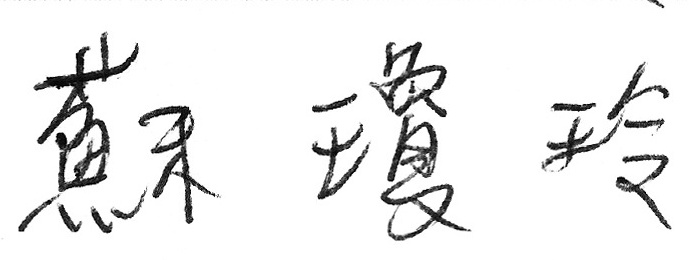 蘇瓊玲